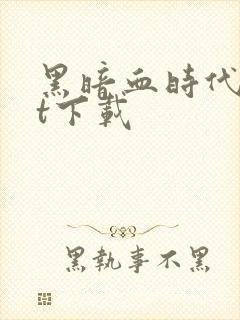 黑暗血時代
t下載
黑執事不黑